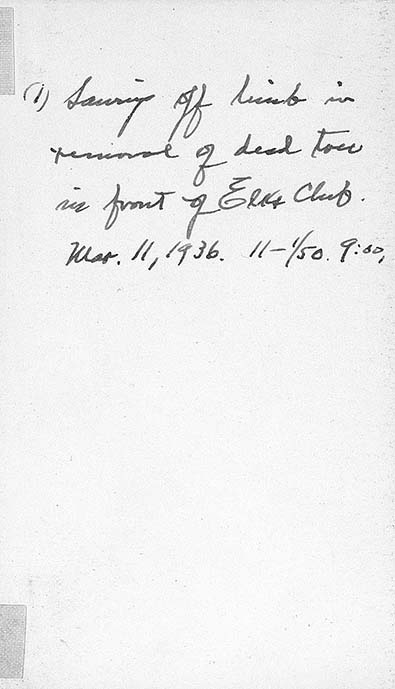 (1) Sawing off limb in
removal of dead tree
in front of Elks Club.
Mar. 11, 1936. 11-1/50. 9:00,